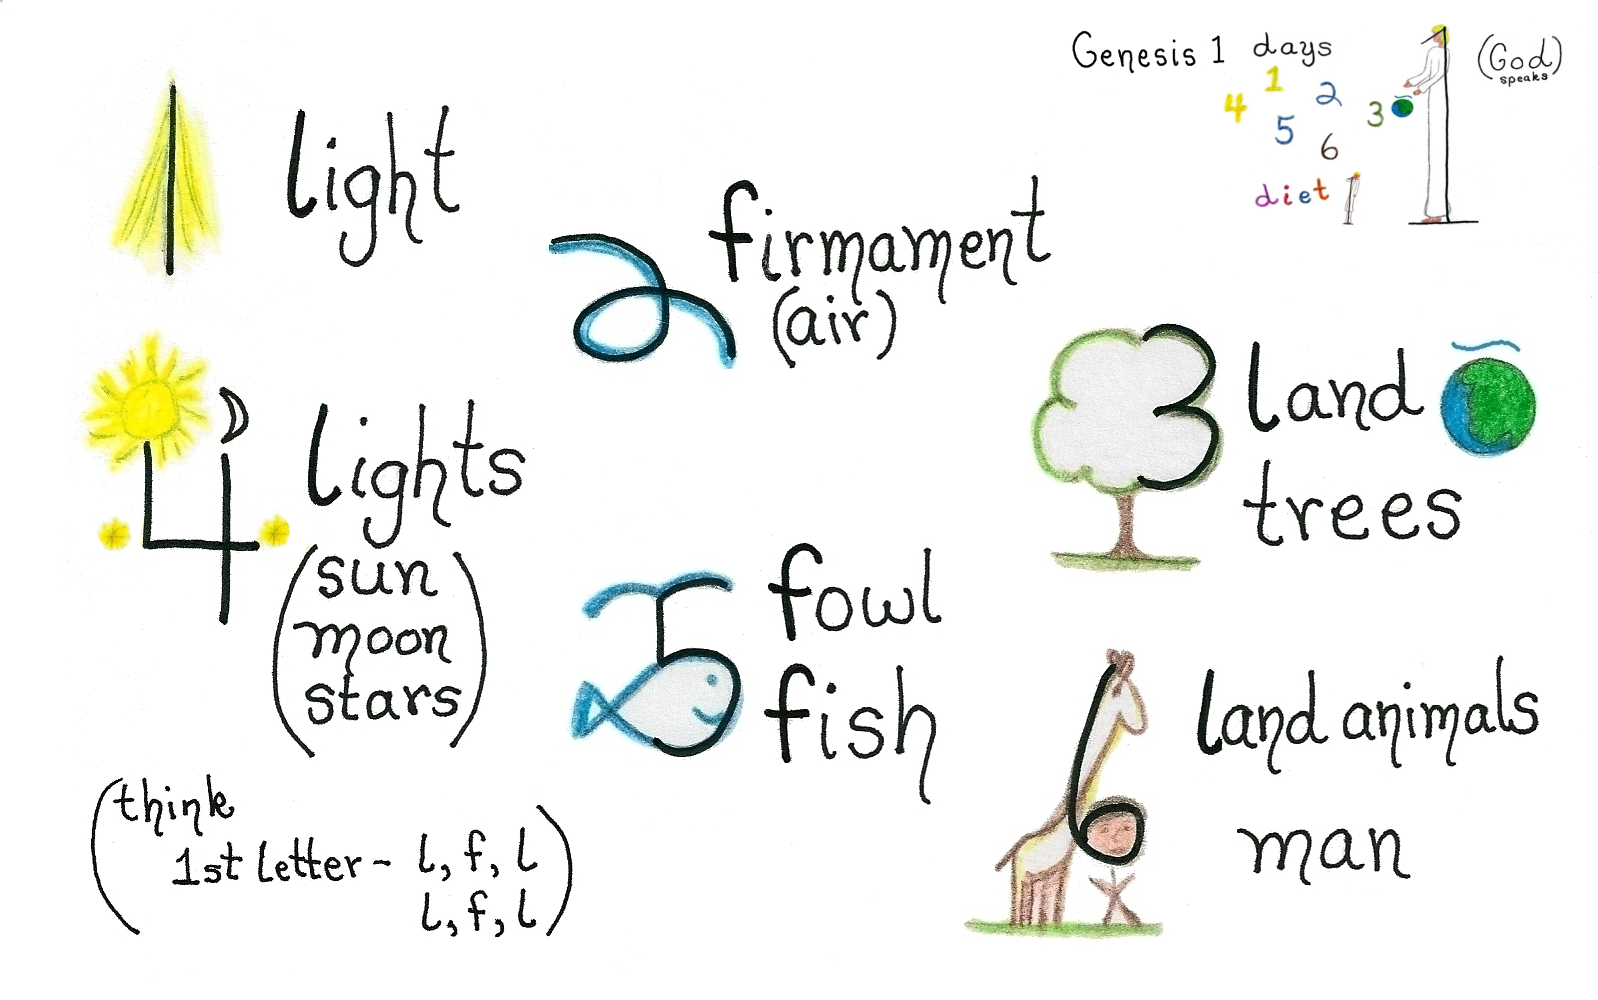 Genesis 1 days
(God)
speaks
1 2
4 3
5
6
diet 1
1 light
2 firmament
(air)
3 land
trees
4 lights
(sun
moon
stars)
5 fowl
fish
6 land animals
man
(think
1st letter - l, f, l
l, f, l)